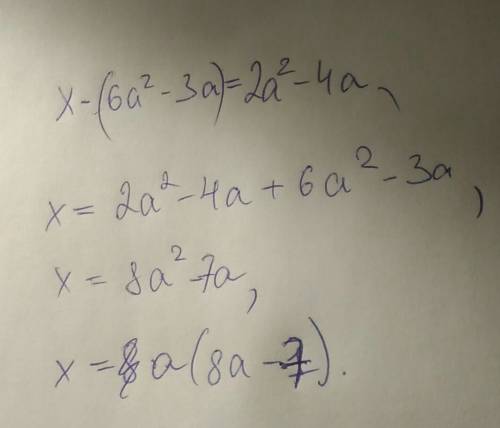 x-(6a²-3a)=2a²-4a,
x=2a²-4a+6a²-3a,
x=8a²-7a,
x=a(8a-7).